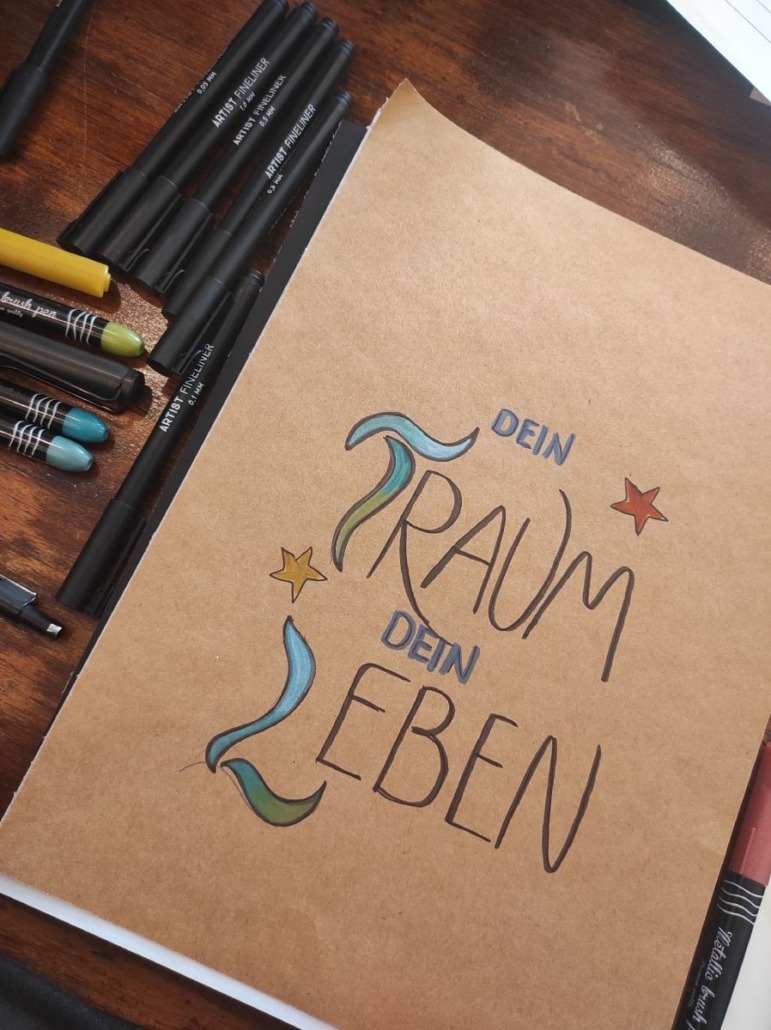 0.05 MM
ARTIST FINELINER
1.0 MM
ARTIST FINELINER
0.5 MM
ARTIST FINELINER
0.3 MM
brush pen
ARTIST FINELINER
0.1 MM
DEIN
TRAUM
DEIN
LEBEN
Metallic brush